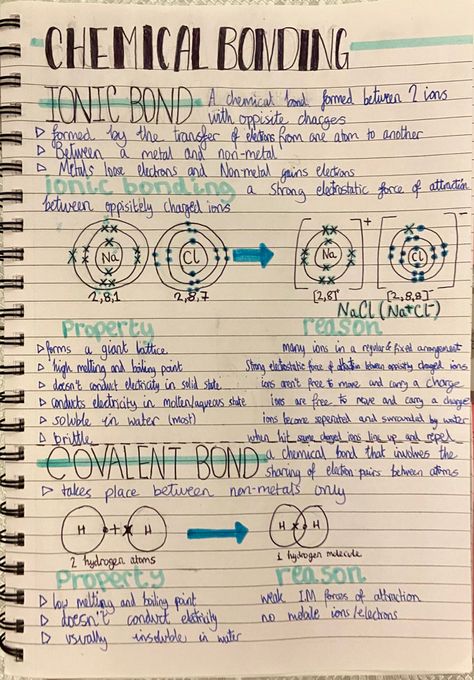 CHEMICAL BONDING
IONIC BOND A chemical bond formed between 2 ions
with oppisite charges
▷ formed by the transfer of electrons from one atom to another
▷ Between a metal and non-metal
▷ Metals loose electrons and Non-metal gains electrons
ionic bonding a strong electrostatic force of attraction
between oppisitely charged ions
Na Cl Na + Cl -
2,8,1 2,8,7 [2,8]+ [2,8,8]-
NaCl (Na+Cl-)
Property reason
▷ forms a giant lattice many ions in a regular & fixed arrangement
▷ high melting and boiling point Strong electrostatic force of attraction between oppisitly charged ions
▷ doesn't conduct electricity in solid state ions aren't free to move and carry a charge
▷ conducts electricity in molten/aqueous state ions are free to move and carry a charge
▷ soluble in water (most) ions become seperated and surrounded by water
▷ brittle when hit same charged ions line up and repel
COVALENT BOND a chemical bond that involves the
sharing of electron pairs between atoms
▷ takes place between non-metals only
H + H H H
2 hydrogen atoms 1 hydrogen molecule
Property reason
▷ low melting and boiling point weak IM forces of attraction
▷ doesn't conduct electricity no mobile ions/electrons
▷ usually insoluble in water